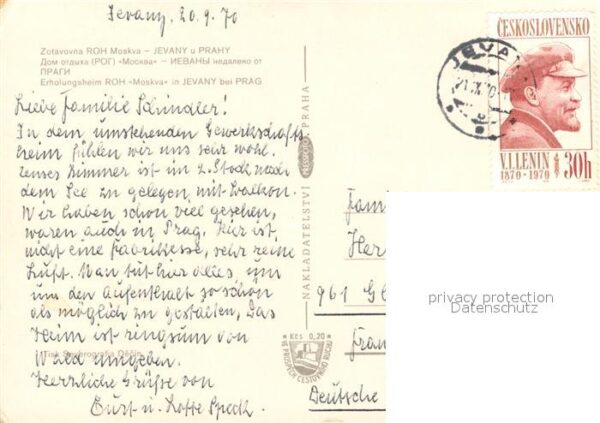 Jevany, 20.9.70
Zotavovna ROH Moskva – JEVANY u PRAHY
Дом отдыха (РОГ) «Москва» – ИЕВАНЫ недалеко от
ПРАГИ
Erholungsheim ROH «Moskva» in JEVANY bei PRAG
Liebe Familie Schindler!
In dem umstehenden Gewerkschafts
heim fühlen wir uns sehr wohl.
Unser Zimmer ist im 2. Stock nach
dem See zu gelegen, mit Balkon.
Wir haben schon viel gesehen,
waren auch in Prag. Hier ist
nicht eine Fabrikesse, sehr reine
Luft. Man tut hier alles, um
um den Aufenthalt so schön
als möglich zu gestalten, Das
Heim ist ringsum von
Wald umgeben.
Herzliche Grüße von
Curt u. Lotte Speck
NAKLADATELSTVÍ
PRAHA
Kčs 0,20
VE PROSPĚCH CESTOVNÍHO RUCHU
ČESKOSLOVENSKO
V.I.LENIN
1870-1970
30h
JEVANY
Fam
Her
961 Gl
Fran
Deutsche
privacy protection
Datenschutz